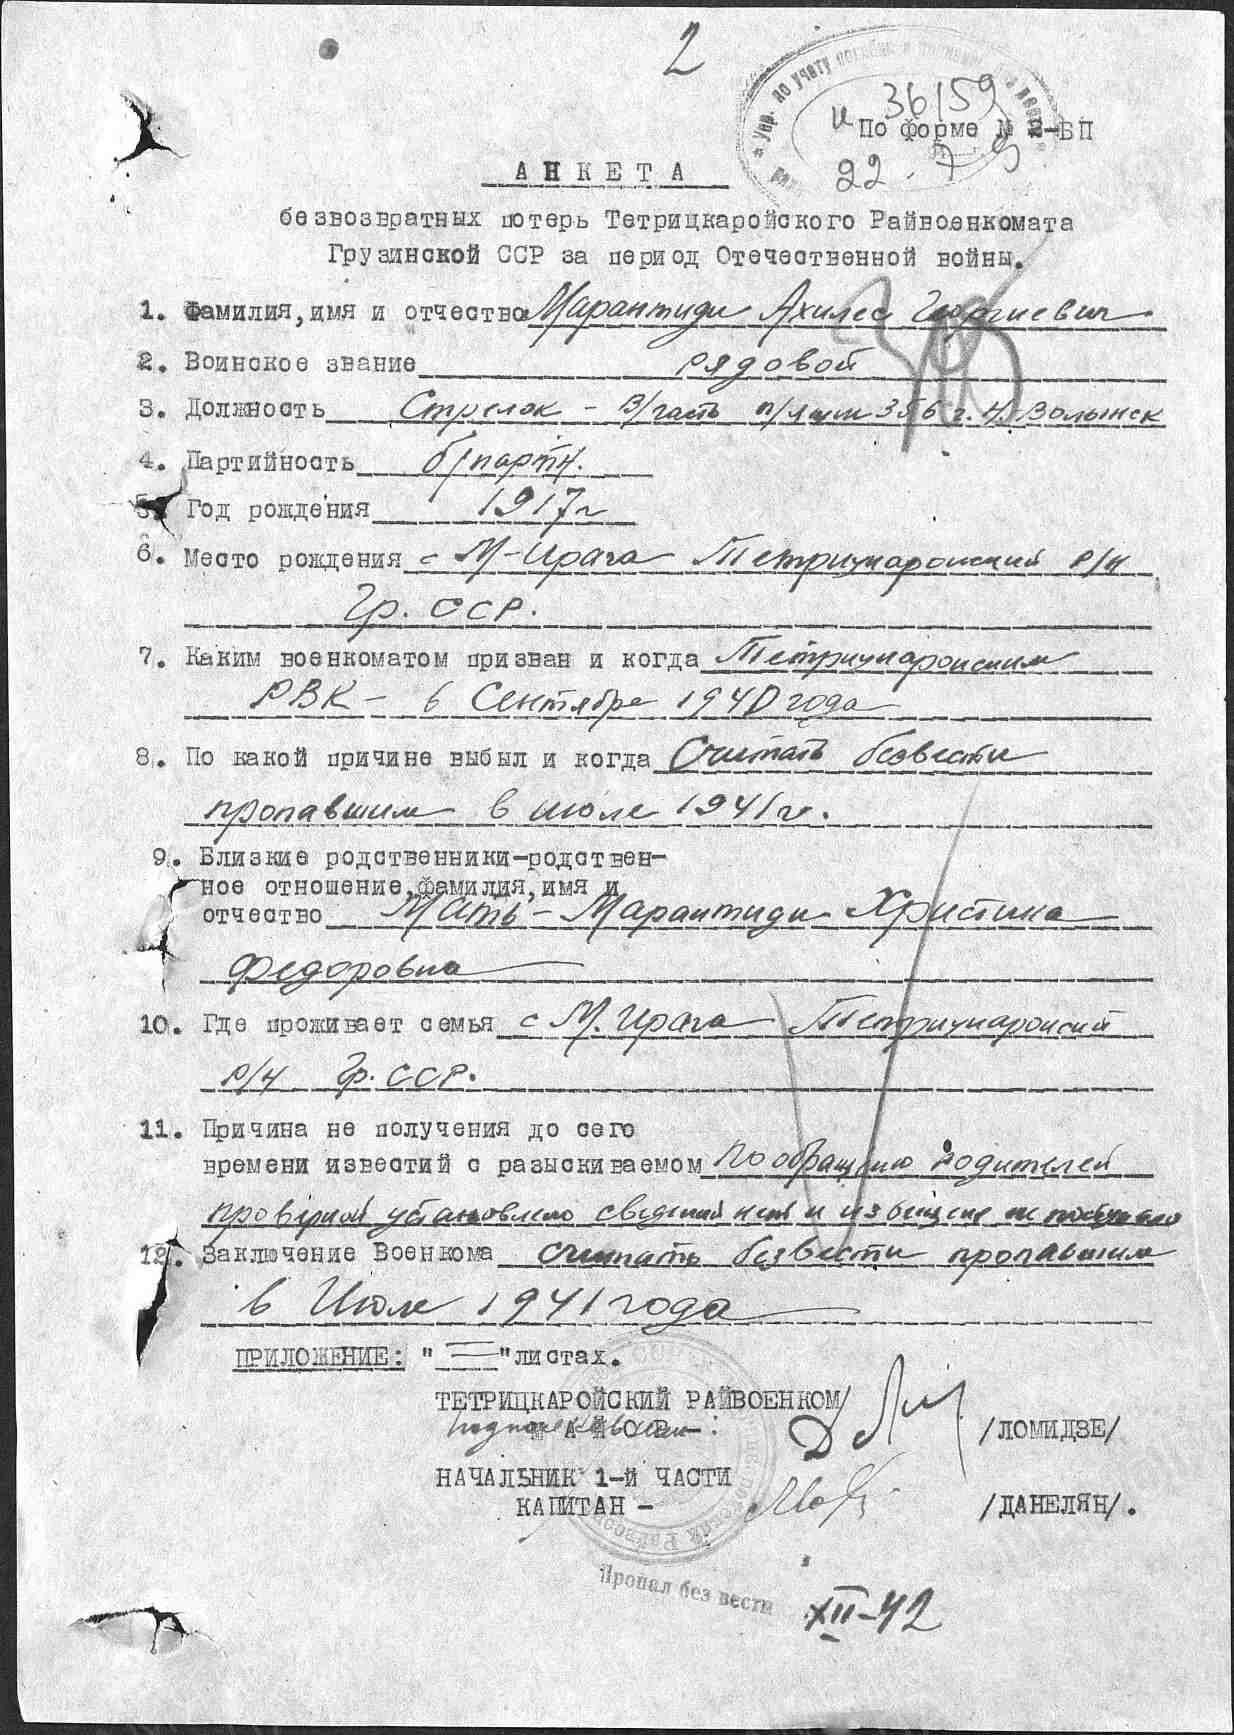 2
Упр. по учету погибш. и
36159
По форме № -БП
22.
АНКЕТА
безвозвратных потерь Тетрицкаройского Райвоенкомата
Грузинской ССР за период Отечественной войны.
1. Фамилия, имя и отчество Марантиди Ахилес Георгиевич
2. Воинское звание рядовой
3. Должность Стрелок - в/часть п/ящик 356 г. Н. Волынск
4. Партийность б/партн.
5. Год рождения 1917 г
6. Место рождения с М-Ирага Тетрицкаройский р/н
Гр. ССР.
7. Каким военкоматом призван и когда Тетрицкаройским
РВК - в Сентябре 1940 года
8. По какой причине выбыл и когда Считать безвести
пропавшим в июле 1941 г.
9. Близкие родственники-родствен-
ное отношение, фамилия, имя и
отчество Мать - Марантиди Христина
Федоровна
10. Где проживает семья с М. Ирага Тетрицкаройский
р/н Гр. ССР.
11. Причина не получения до сего
времени известий с разыскиваемом по обращению родителей
проверкой установлено сведений нет и извещение не поступало
12. Заключение Военкома считать безвести пропавшим
в Июле 1941 года
ПРИЛОЖЕНИЕ: "=" листах.
ТЕТРИЦКАРОЙСКИЙ РАЙВОЕНКОМ
подполковник МАЙОР - : /ЛОМИДЗЕ/
НАЧАЛЬНИК 1-й ЧАСТИ
КАПИТАН - /ДАНЕЛЯН/.
Пропал без вести
XII-42